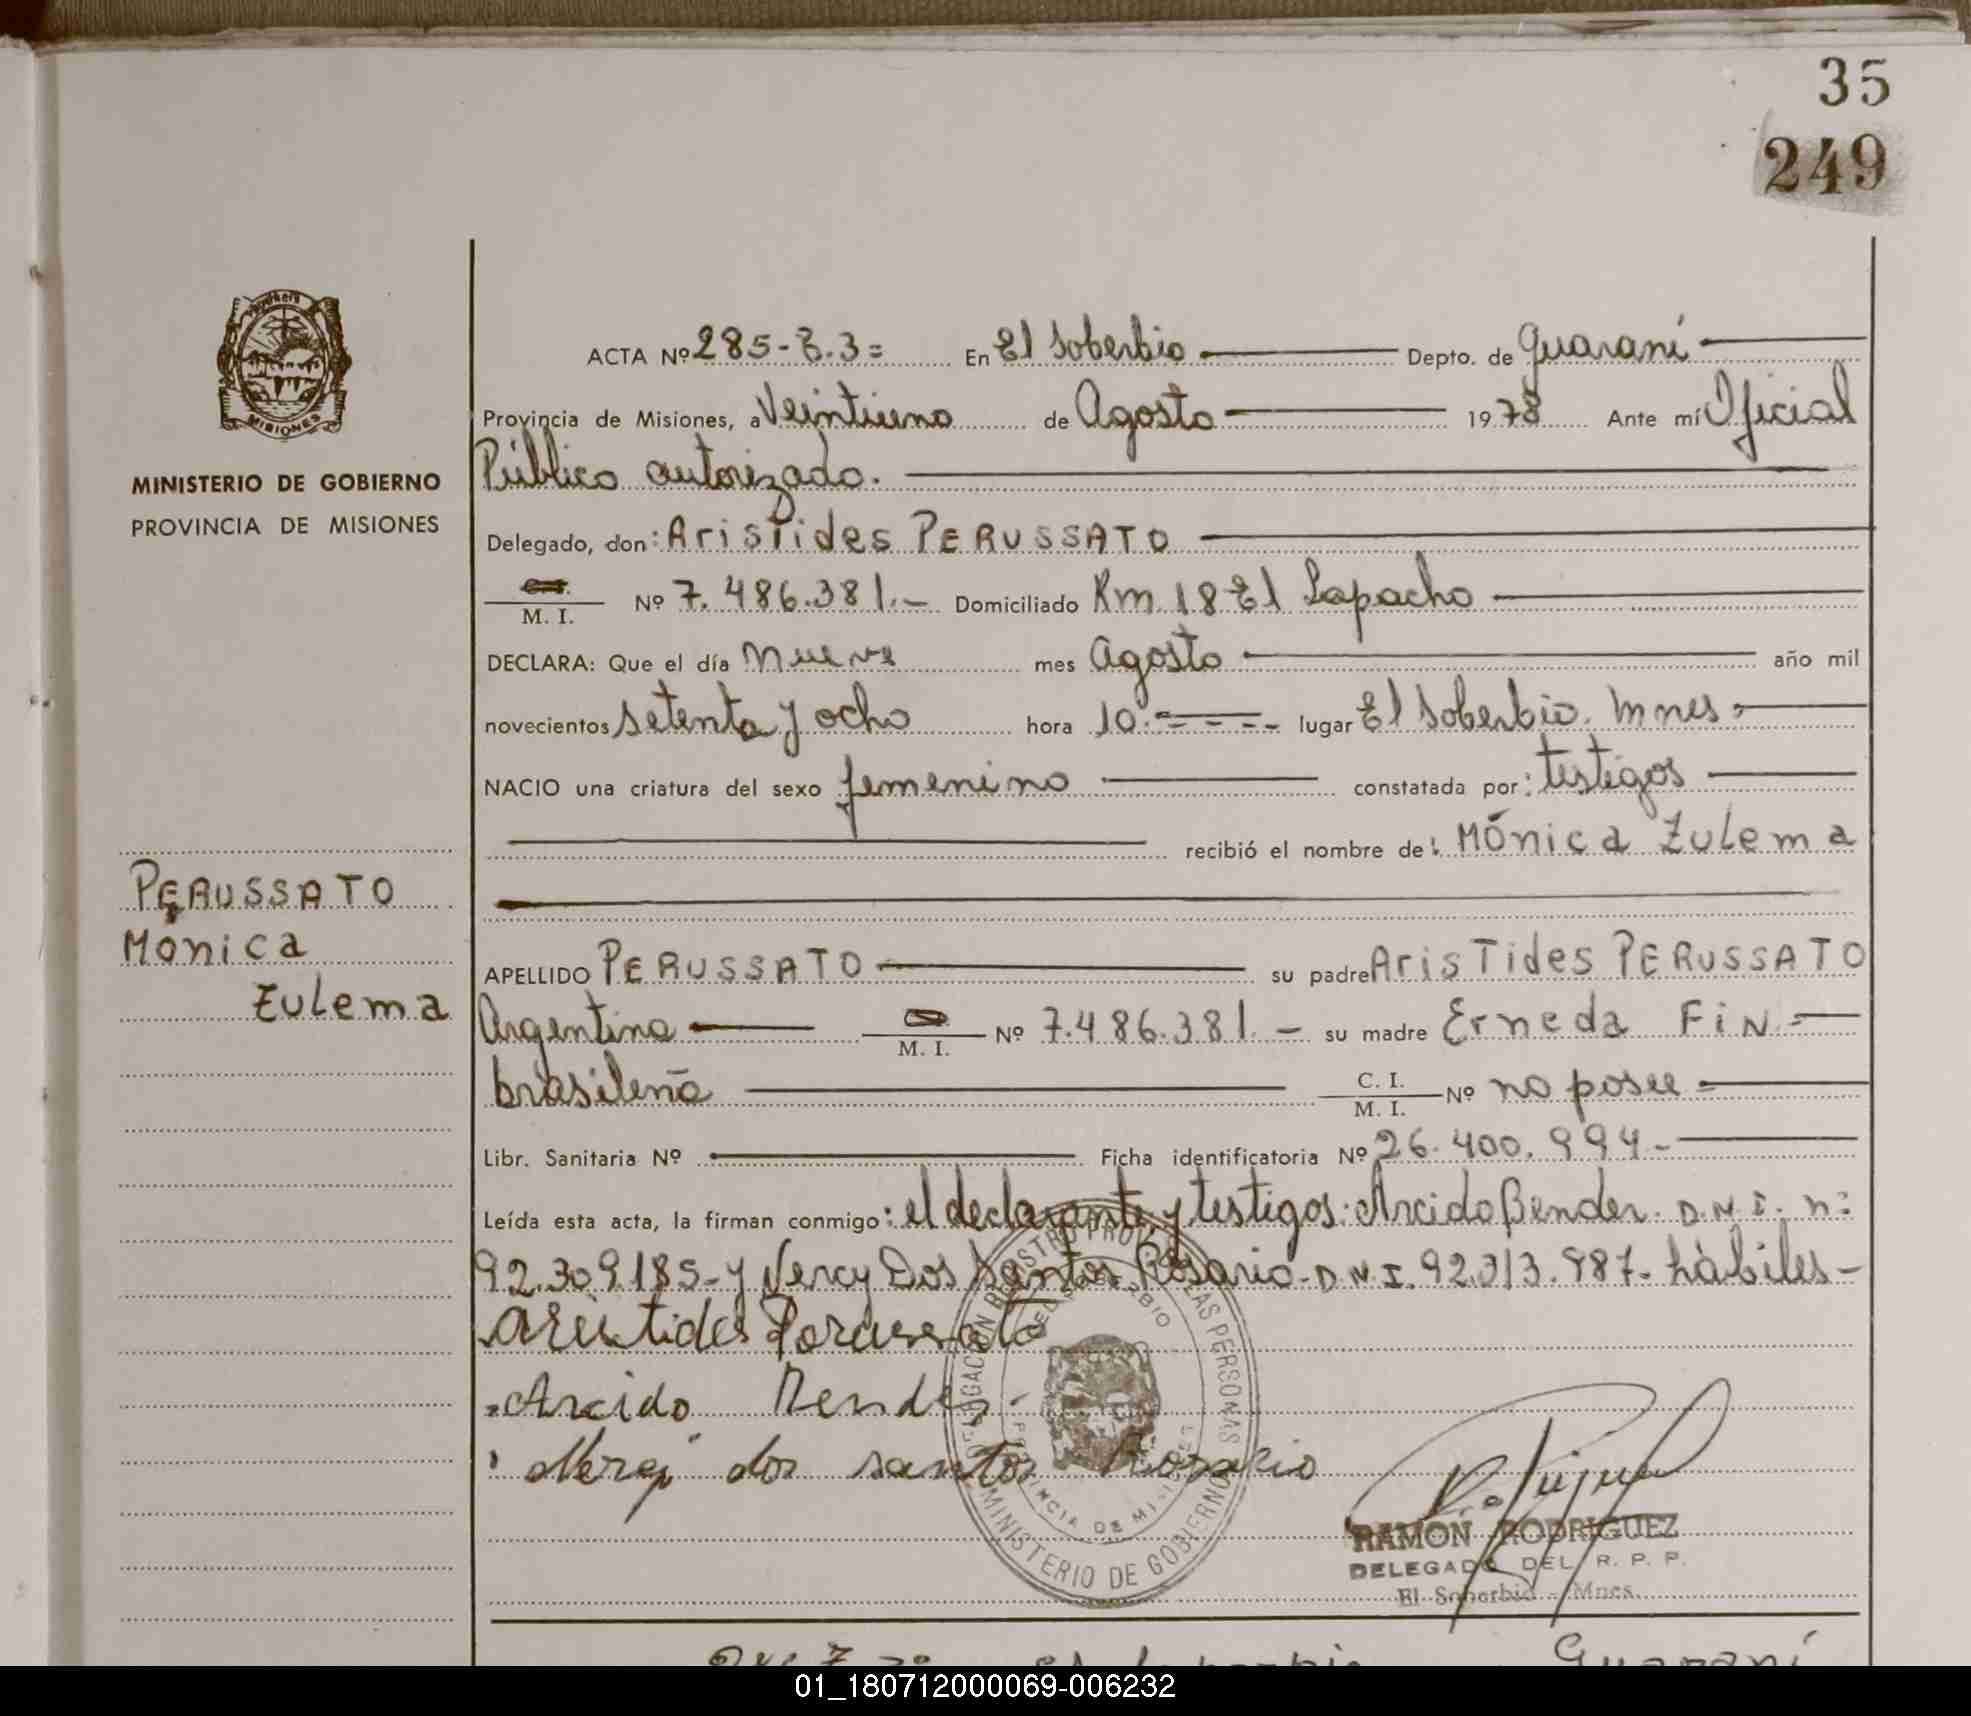 35
249
MISIONES
MINISTERIO DE GOBIERNO
PROVINCIA DE MISIONES
ACTA Nº 285-B.3= En El Soberbio Depto. de Guaraní
Provincia de Misiones, a Veintiuno de Agosto 1978 Ante mí Oficial
Público autorizado.
Delegado, don: Aristides PERUSSATO
M. I. Nº 7.486.381.- Domiciliado Km 18 El Lapacho
DECLARA: Que el día nueve mes Agosto año mil
novecientos setenta y ocho hora 10 lugar El Soberbio. Mnes
NACIO una criatura del sexo femenino constatada por: testigos
recibió el nombre de: Mónica Zulema
PERUSSATO
Mónica
Zulema
APELLIDO PERUSSATO su padre Aristides PERUSSATO
Argentino M. I. Nº 7.486.381.- su madre Erneda FiN
brasileña C. I. M. I. Nº no posee
Libr. Sanitaria Nº Ficha identificatoria Nº 26.400.994-
Leída esta acta, la firman conmigo: el declarante y testigos: Arcido Bender. D.N.I. n:
92.309.185-y Nercy Dos Santos Rosario-D.N.I. 92.313.987- hábiles-
Arcido
dos santos Rosario
MINISTERIO DE GOBIERNO
PROVINCIA DE MISIONES
RAMON RODRIGUEZ
DELEGADO DEL R. P. P.
El Soberbio - Mnes.
Guaraní
01_180712000069-006232